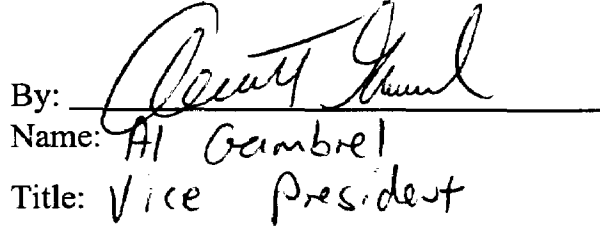 By:
Name: Al Gambrel
Title: Vice President